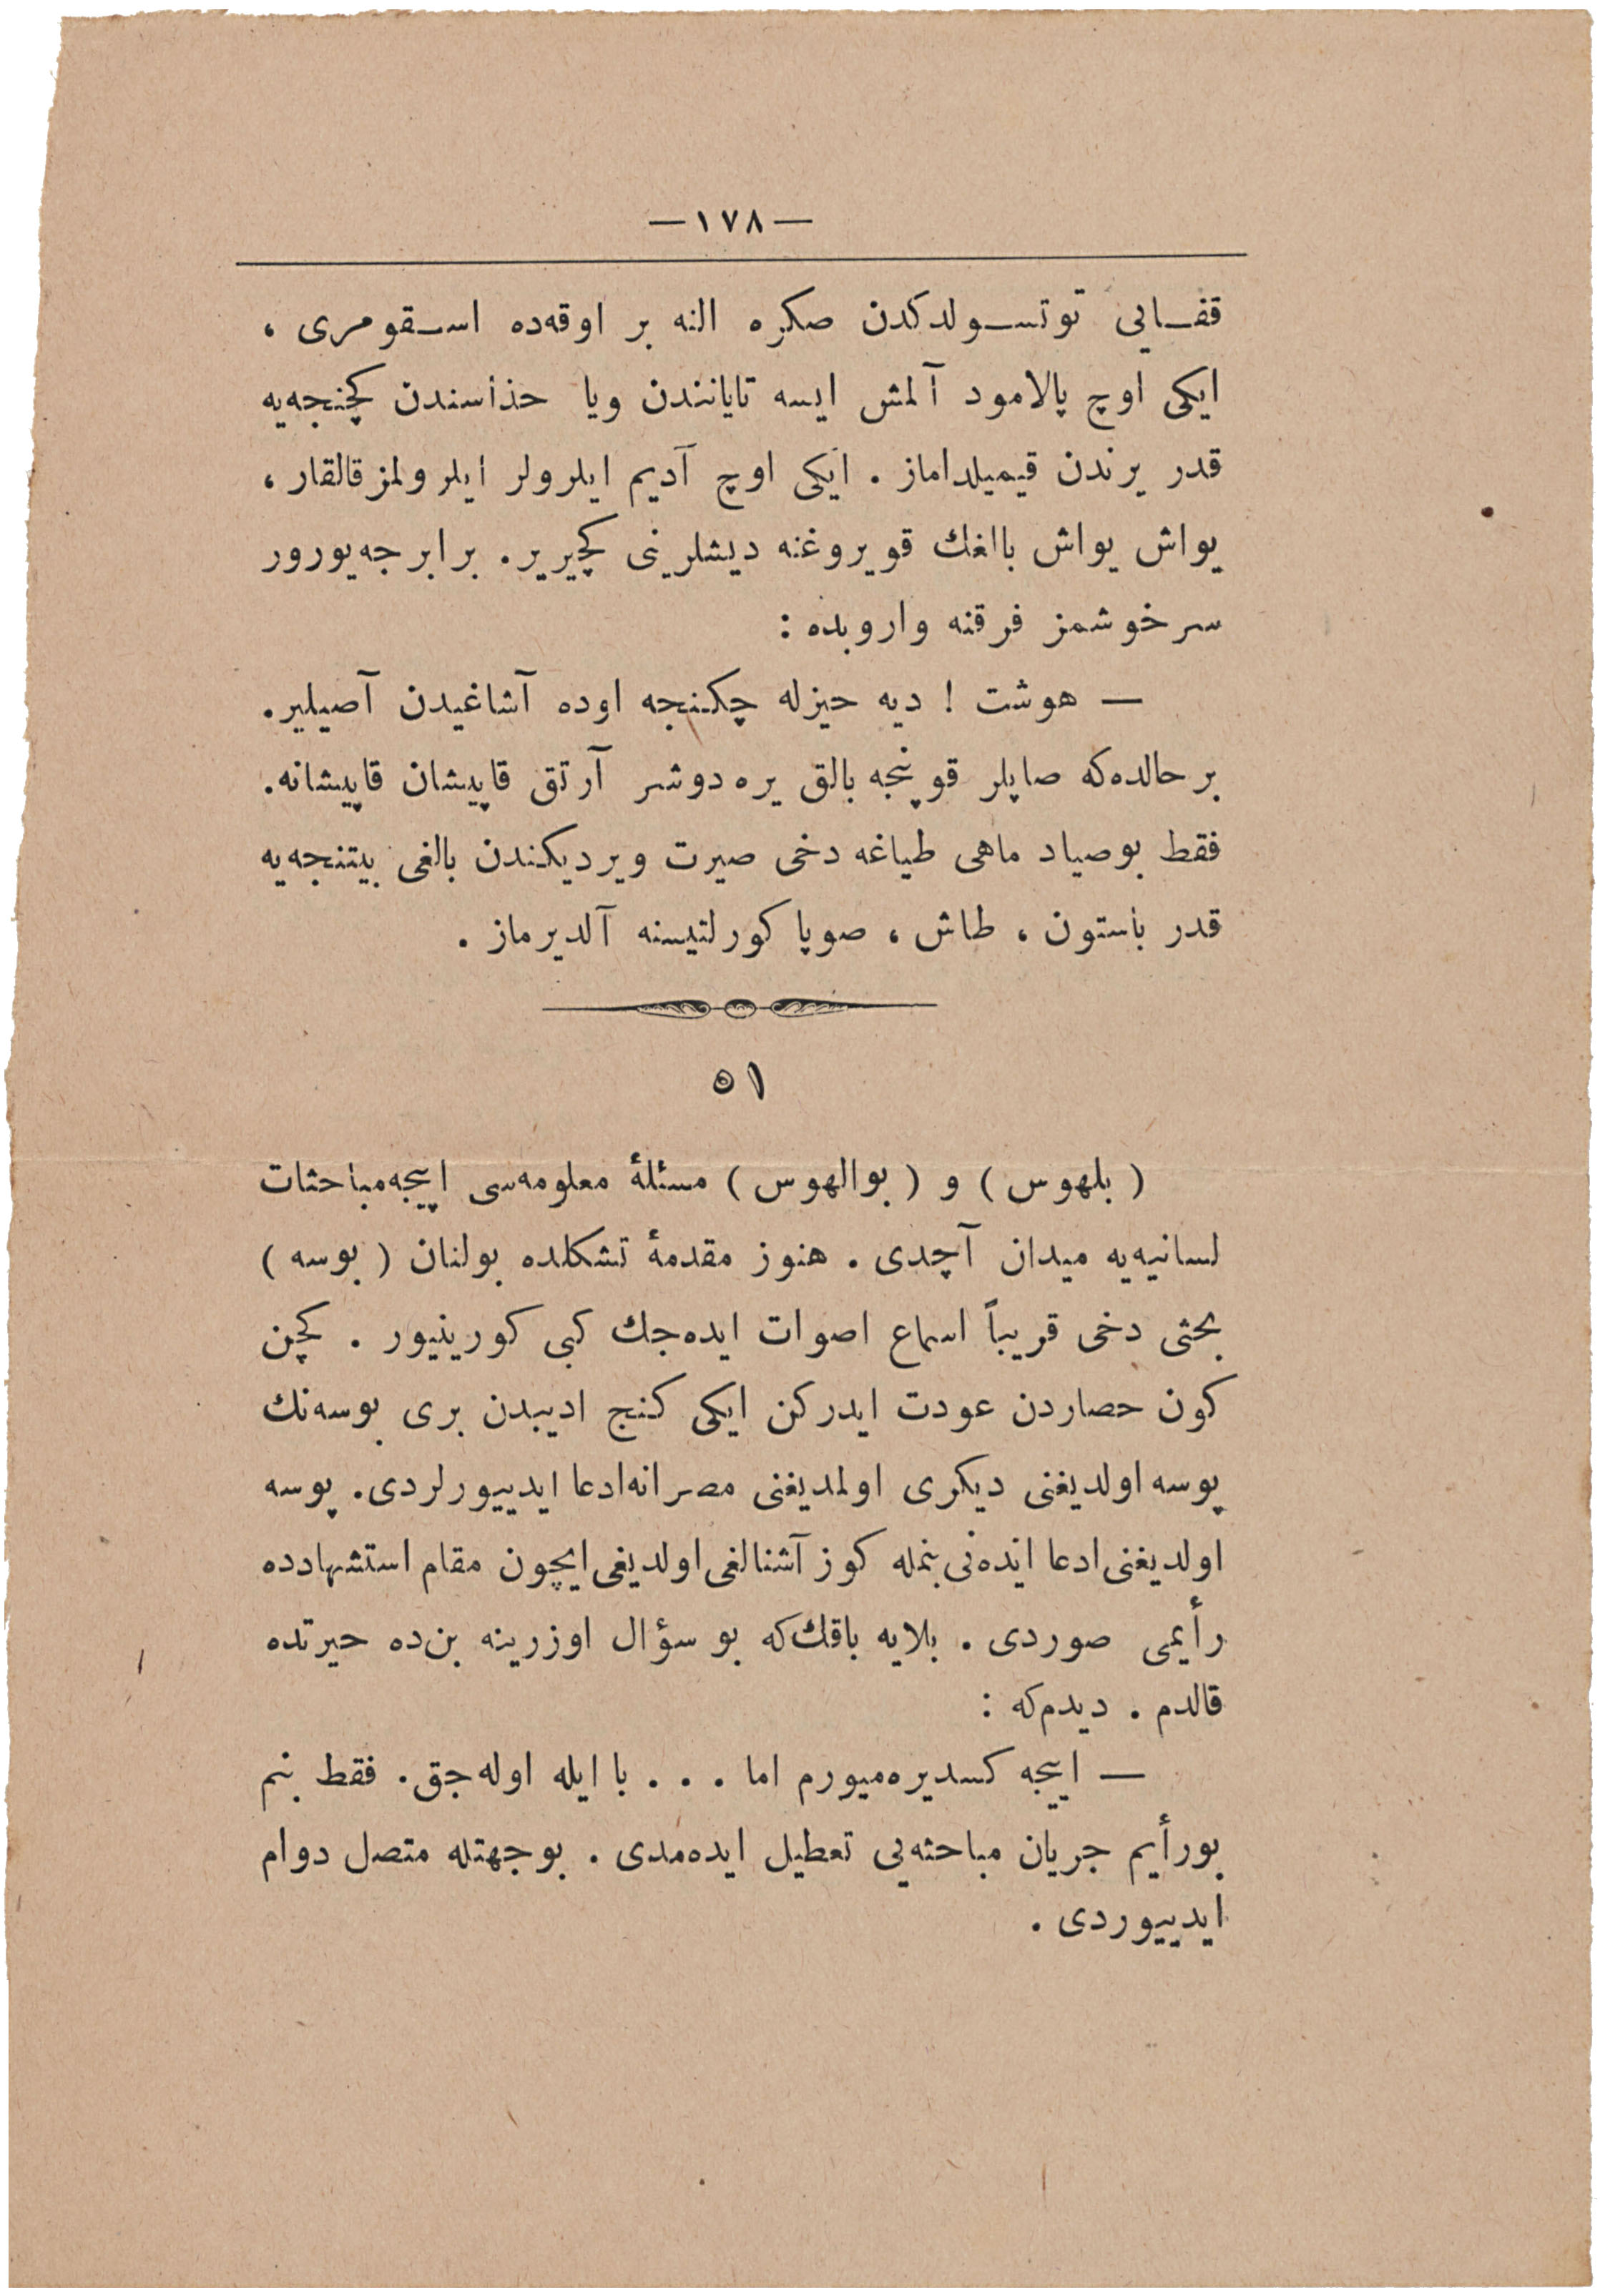 — ١٧٨ —
قفايى توتسولدكدن صكره النه بر اوقه‌ده اسقومرى ،
ايكى اوچ پالامود آلمش ايسه تاياننندن ويا حذاسندن كچنجه‌يه
قدر يرندن قيميلداماز . ايكى اوچ آديم ايلرولر ايلرولمز قالقار ،
يواش يواش بالغك قويروغنه ديشلرينى كچيرير . برابرجه يورور
سرخوشمز فرقنه واروبده :
— هوشت ! ديه حيزله چكنجه اوده آشاغيدن آصيلير .
بر حالده‌كه صاپلر قوپنجه بالق يره دوشر آرتق قاپيشان قاپيشانه .
فقط بو صياد ماهى طياغه دخى صيرت ويرديكندن بالغى بيتنجه‌يه
قدر باستون ، طاش ، صوپا كورلتيسنه آلديرماز .
٥١
( بلهوس ) و ( بوالهوس ) مسئلۀ معلومه‌سى اپيجه مباحثات
لسانيه‌يه ميدان آچدى . هنوز مقدمۀ تشكلده بولنان ( بوسه )
بحثى دخى قريباً اسماع اصوات ايده‌جك كبى كورينيور . كچن
كون حصاردن عودت ايدركن ايكى كنج اديبدن برى بوسه‌نك
پوسه اولديغنى ديكرى اولمديغنى مصرانه ادعا ايدييورلردى . پوسه
اولديغنى ادعا ايده‌نى بنمله كوز آشنالغى اولديغى ايچون مقام استشهادده
رأيمى صوردى . بلايه باقك‌كه بو سؤال اوزرينه بن‌ده حيرتده
قالدم . ديدم‌كه :
— اپيجه كسديره‌ميورم اما . . . با ايله اوله‌جق . فقط بنم
بورأيم جريان مباحثه‌يى تعطيل ايده‌مدى . بوجهتله متصل دوام
ايدييوردى .